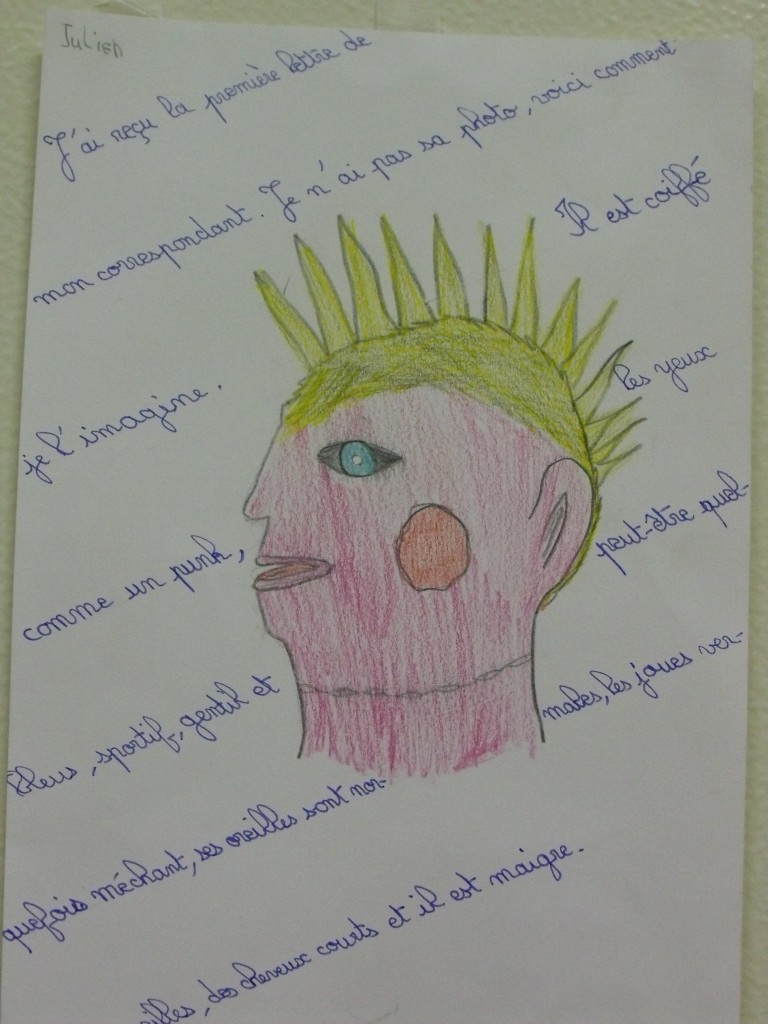 Julien
J'ai reçu la première lettre de
mon correspondant. Je n'ai pas sa photo, voici comment
je l'imagine. Il est coiffé
comme un punk, les yeux
bleus, sportif, gentil et peut-être quel-
quefois méchant, ses oreilles sont nor-
males, les joues ver-
illes, des cheveux courts et il est maigre.